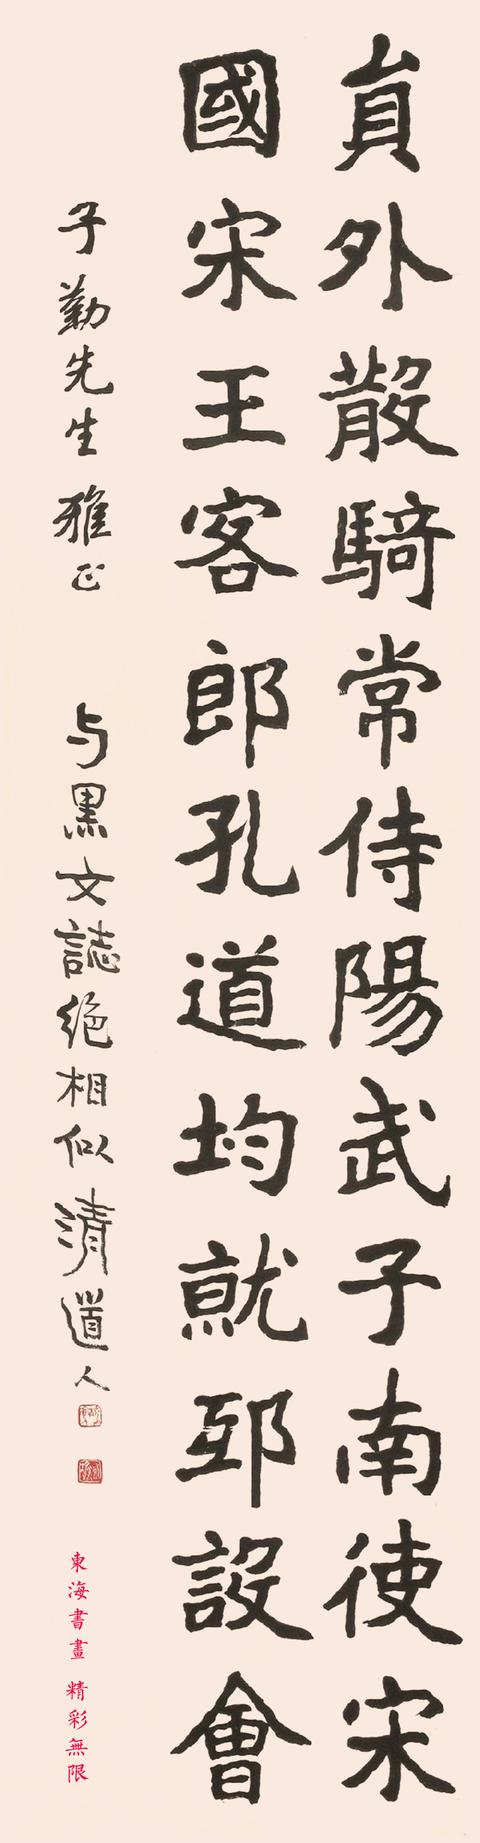 員外散騎常侍陽武子南使宋
國宋王客郎孔道均就邸設會
子勤先生雅正
与黑文誌絕相似清道人
東海書畫 精彩無限